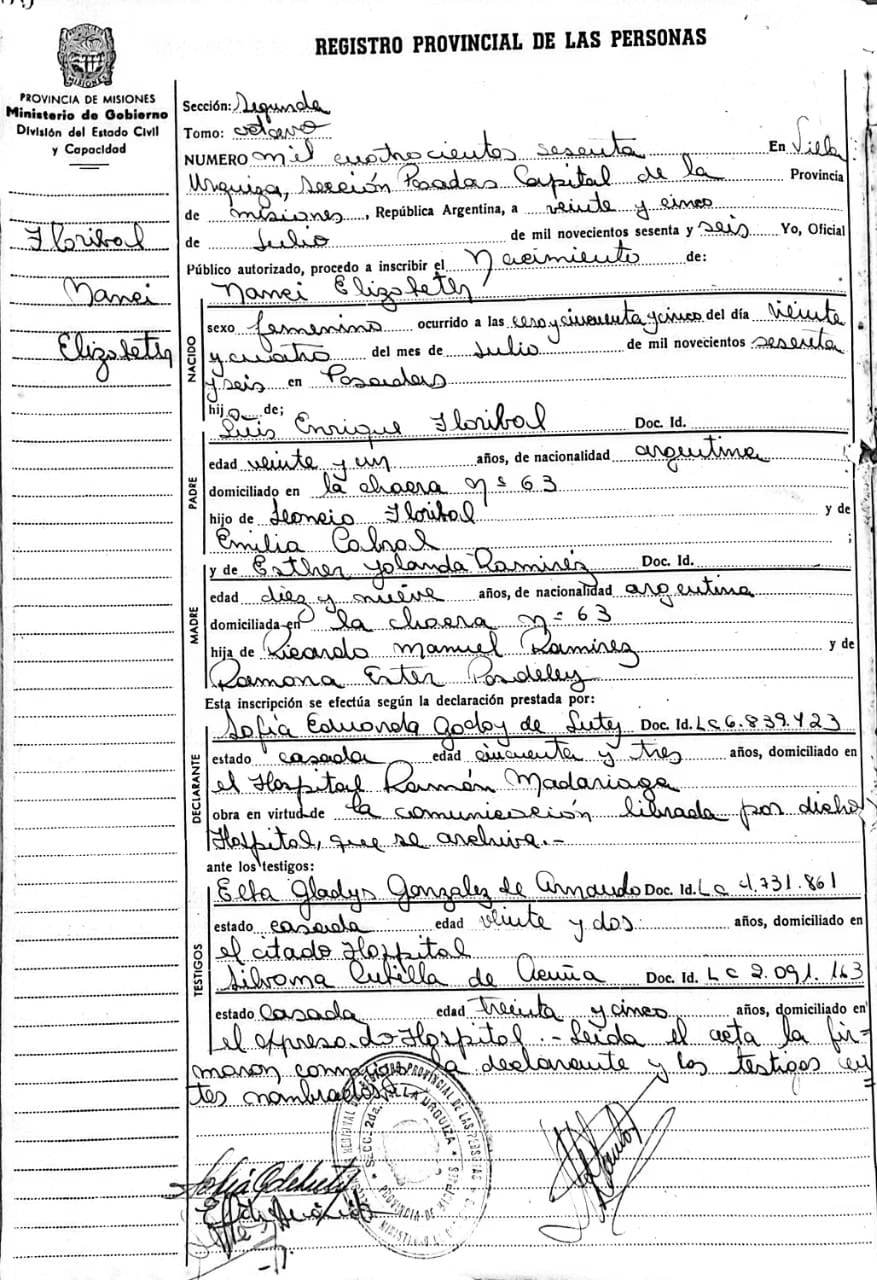 REGISTRO PROVINCIAL DE LAS PERSONAS
MISIONES
PROVINCIA DE MISIONES
Ministerio de Gobierno
División del Estado Civil
y Capacidad
Floribal
Nanci
Elizabeth
Sección: Segunda
Tomo: octavo
NUMERO mil cuatrocientos sesenta En Villa
Urquiza, Sección Posadas Capital de la Provincia
de misiones, República Argentina, a veinte y cinco
de Julio de mil novecientos sesenta y seis Yo, Oficial
Público autorizado, procedo a inscribir el Nacimiento de:
NACIDO
Nanci Elizabeth
sexo femenino ocurrido a las cero y cincuenta y cinco del día veinte
y cuatro del mes de Julio de mil novecientos sesenta
y seis en Posadas
hija de;
PADRE
Luis Enrique Floribal Doc. Id.
edad veinte y un años, de nacionalidad argentina
domiciliado en la chacra nº 63
hijo de Leoncio Floribal y de
Emilia Cabral ;
MADRE
y de Esther Yolanda Ramirez Doc. Id.
edad diez y nueve años, de nacionalidad argentina
domiciliada en la chacra nº 63
hija de Ricardo Manuel Ramirez y de
Ramona Ester
Esta inscripción se efectúa según la declaración prestada por:
DECLARANTE
Sofia Eduarda Godoy de Doc. Id. Lc 6.839.423
estado casada edad cincuenta y tres años, domiciliado en
el Hospital Ramón Madariaga
obra en virtud de la comunicación librada por dicho
Hospital, que se archiva.-
ante los testigos:
TESTIGOS
Elba Gladys Gonzalez de Doc. Id. Lc 4.731.861
estado casada edad veinte y dos años, domiciliado en
el citado Hospital
Silvana de Acuña Doc. Id. LC 2.091.163
estado Casada edad treinta y cinco años, domiciliado en
el expresado Hospital.- Leida el acta la fir=
maron conmigo la declarante y los testigos an=
tes nombrados.
SECC. 2da. VILLA URQUIZA
PROVINCIA DE MISIONES